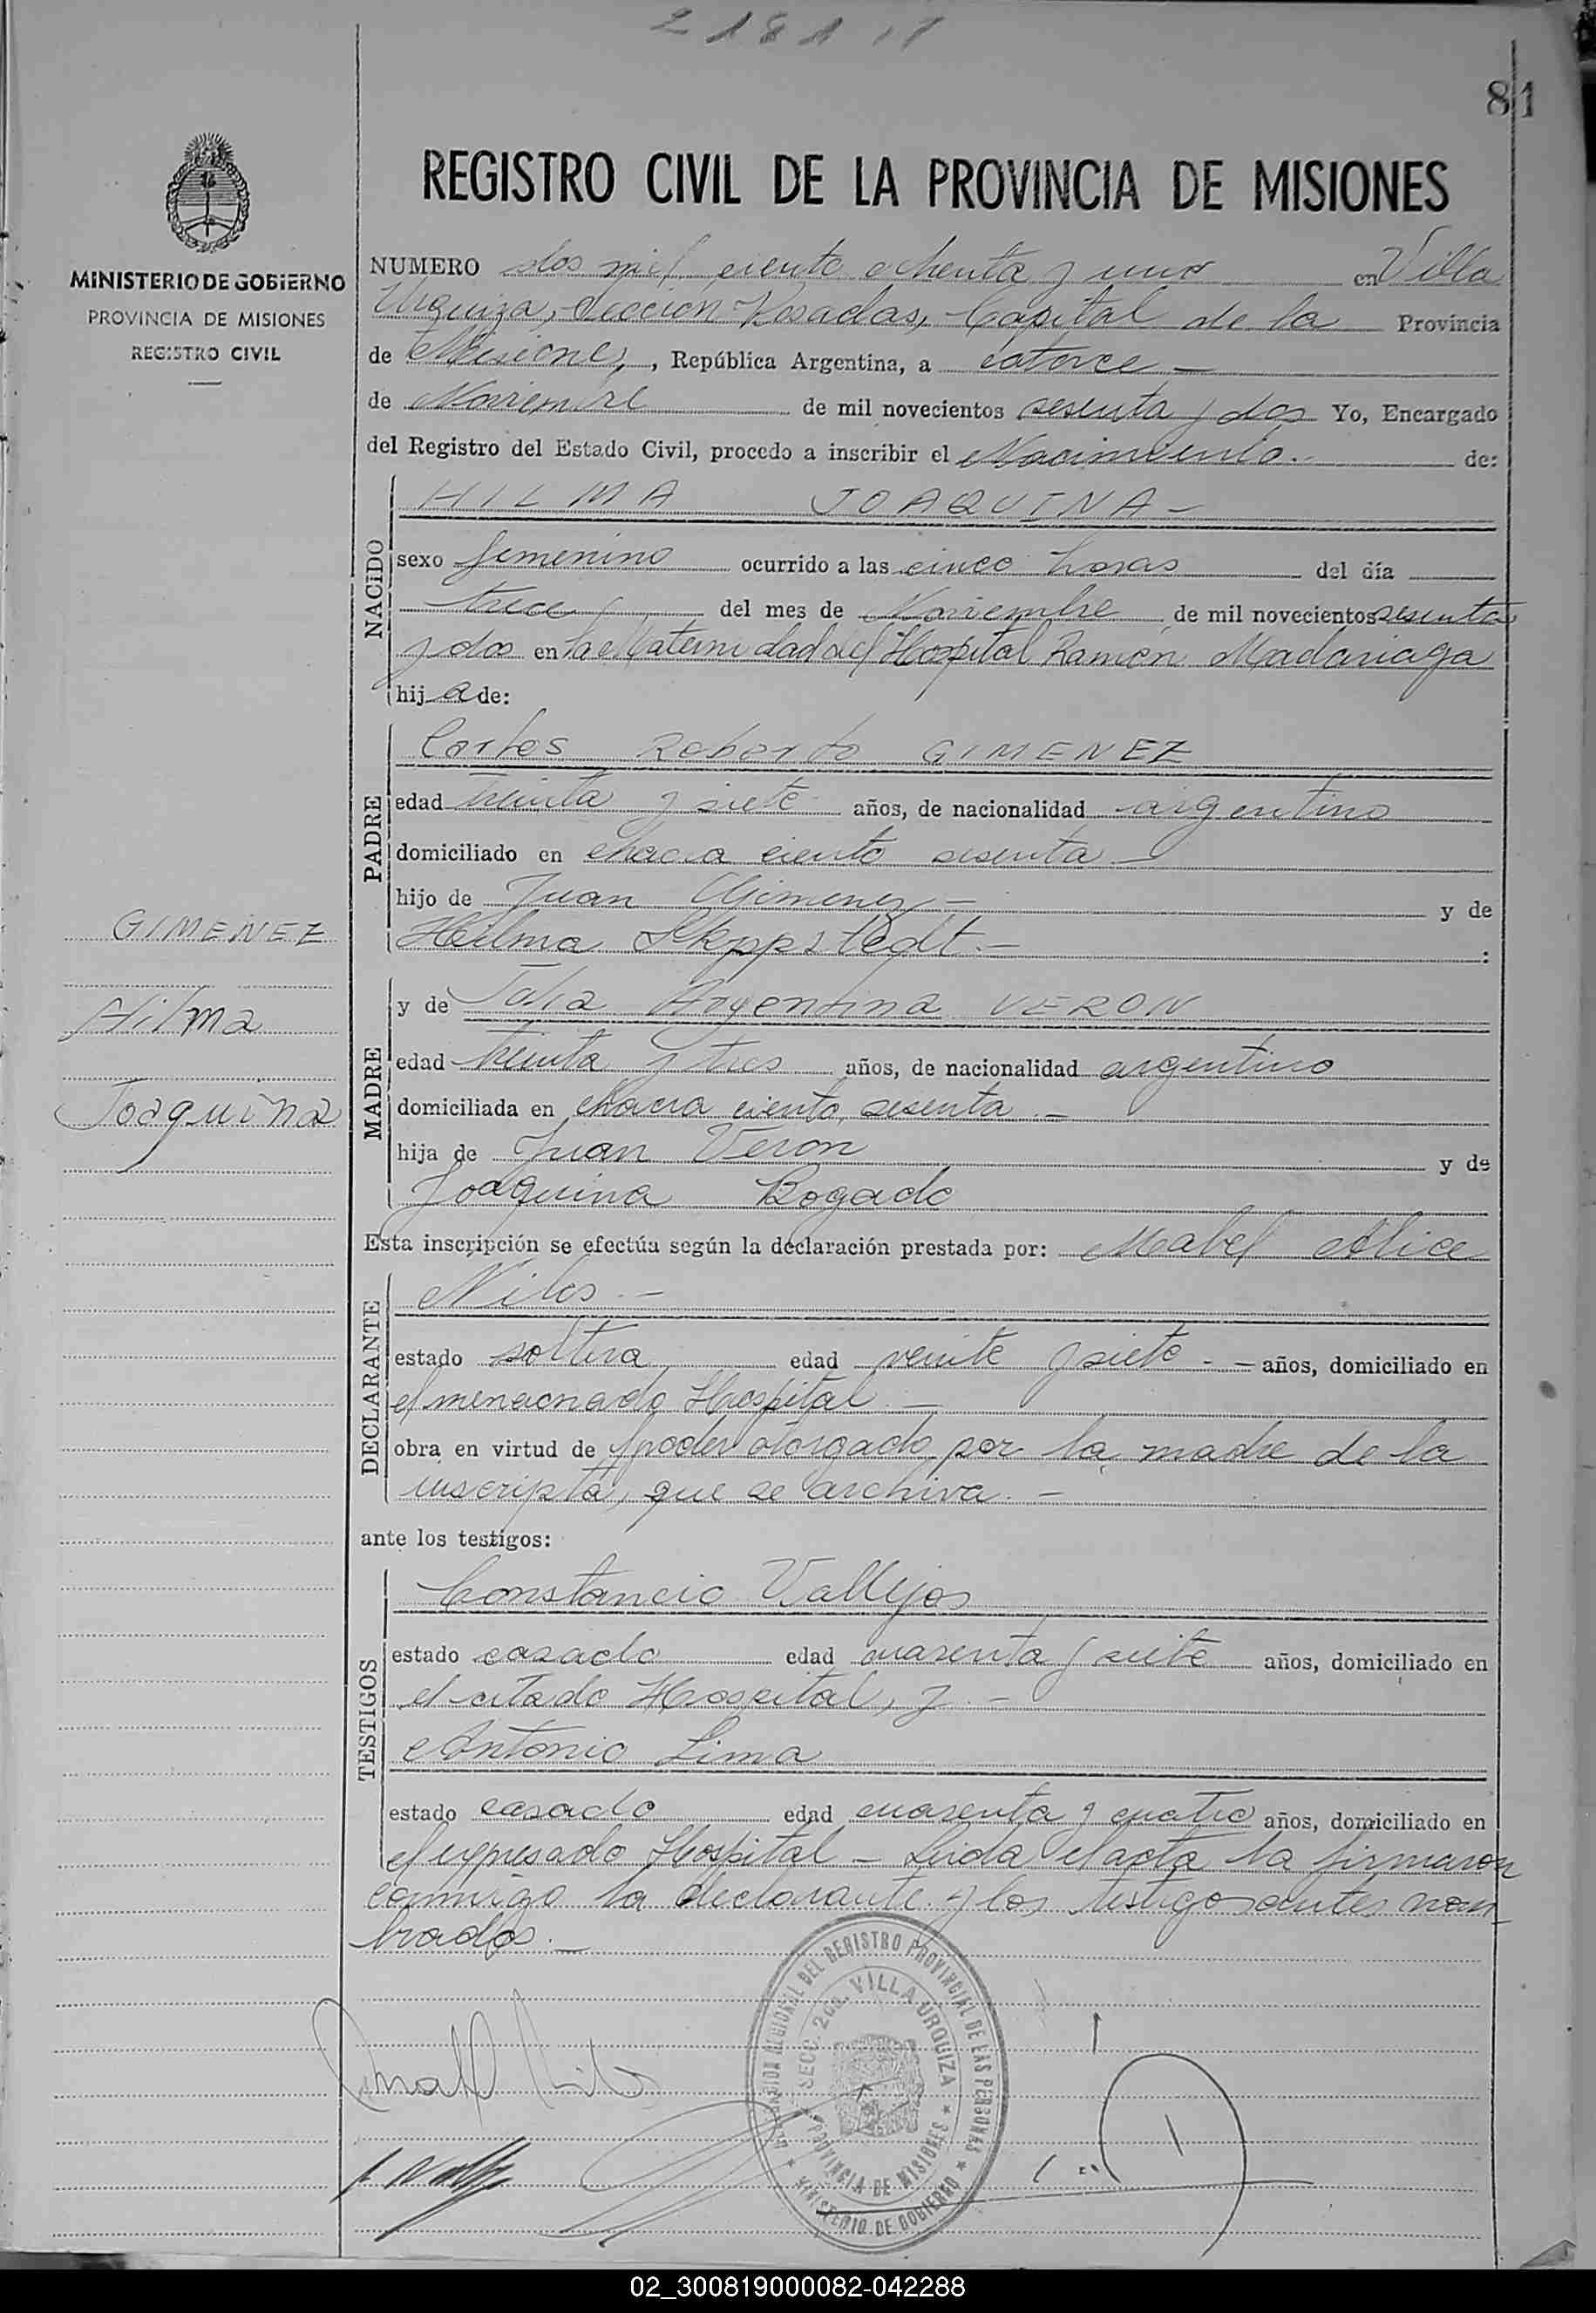 2181
81
MINISTERIO DE GOBIERNO
PROVINCIA DE MISIONES
REGISTRO CIVIL
REGISTRO CIVIL DE LA PROVINCIA DE MISIONES
NUMERO dos mil ciento ochenta y uno en Villa
Urquiza, Sección Posadas, Capital de la Provincia
de Misiones, República Argentina, a catorce —
de Noviembre de mil novecientos sesenta y dos Yo, Encargado
del Registro del Estado Civil, procedo a inscribir el Nacimiento.- de:
NACIDO
HILMA JOAQUINA —
sexo femenino ocurrido a las cinco horas del día
trece del mes de Noviembre de mil novecientos sesenta
y dos en la Maternidad del Hospital Ramón Madariaga
hija de:
PADRE
Carlos Roberto GIMENEZ
edad treinta y siete años, de nacionalidad argentino
domiciliado en chacra ciento sesenta —
hijo de Juan Gimenez — y de
Hilma :
GIMENEZ
Hilma
Joaquina
MADRE
y de Argentina VERON
edad treinta y tres años, de nacionalidad argentino
domiciliada en chacra ciento sesenta .—
hija de Juan Veron y de
Joaquina Bogado
Esta inscripción se efectúa según la declaración prestada por: Mabel Alice
DECLARANTE
Niles .—
estado soltera edad veinte y siete - — años, domiciliado en
el mencionado Hospital .—
obra en virtud de poder otorgado por la madre de la
inscripta, que se archiva. —
ante los testigos:
TESTIGOS
Constancio Vallejos
estado casado edad cuarenta y siete años, domiciliado en
el citado Hospital, y .—
Antonio Lima
estado casado edad cuarenta y cuatro años, domiciliado en
el expresado Hospital — Leida el acta la firmaron
conmigo la declarante y los testigos antes nom
brados. —
DEL REGISTRO PROVINCIAL DE LAS PERSONAS
SECC. 2da. VILLA URQUIZA
PROVINCIA DE MISIONES
MINISTERIO DE GOBIERNO
02_300819000082-042288